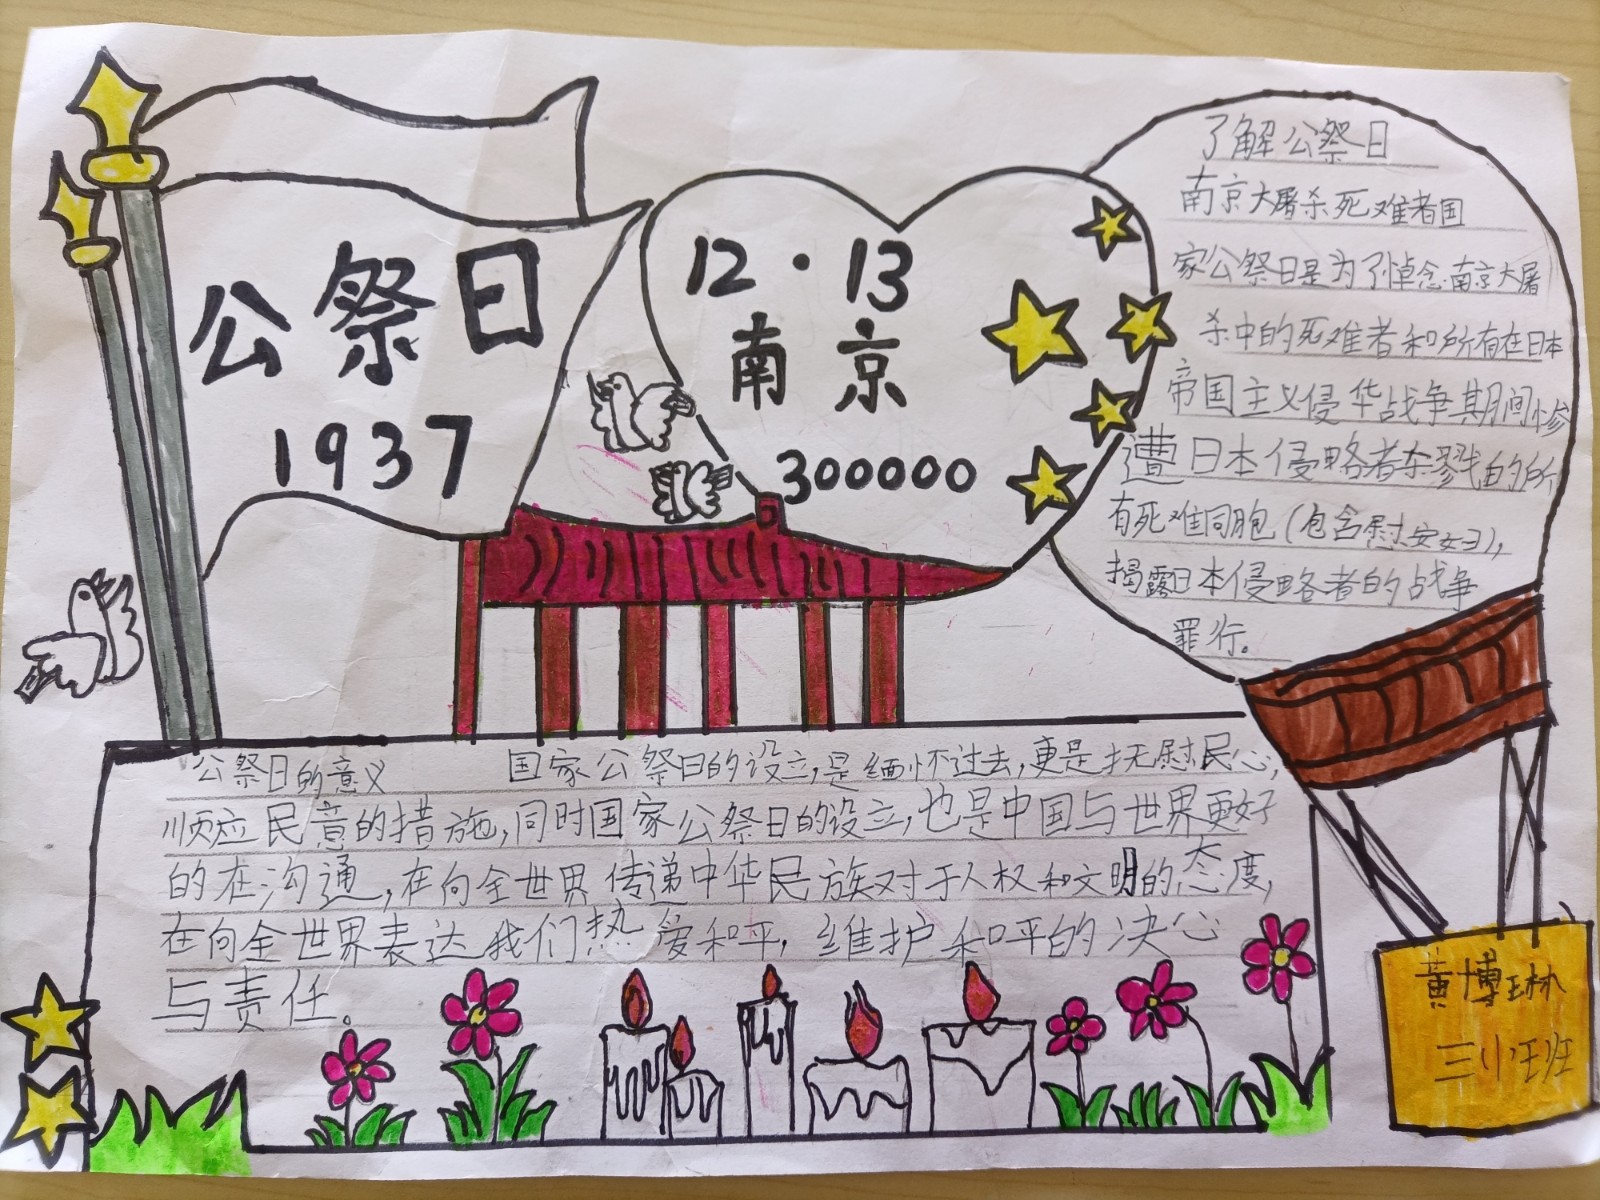 公祭日
1937
12·13
南京
300000
了解公祭日
南京大屠杀死难者国
家公祭日是为了悼念南京大屠
杀中的死难者和所有在日本
帝国主义侵华战争期间惨
遭日本侵略者杀戮的所
有死难同胞(包含慰安妇),
揭露日本侵略者的战争
罪行。
公祭日的意义 国家公祭日的设立,是缅怀过去,更是抚慰民心,
顺应民意的措施,同时国家公祭日的设立,也是中国与世界更好
的在沟通,在向全世界传递中华民族对于人权和文明的态度,
在向全世界表达我们热爱和平,维护和平的决心
与责任。
黄博琳
三小班